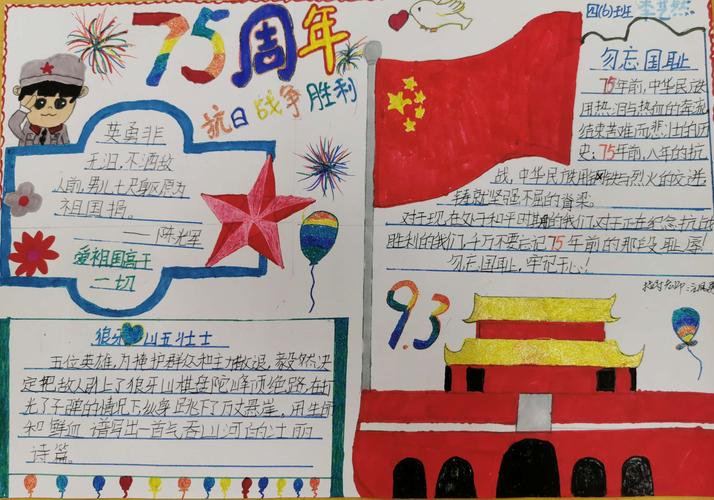 75周年
抗日战争胜利
英勇非
无泪,不洒敌
人前,男儿七尺躯,愿为
祖国捐。
——陈光
爱祖国高于
一切
狼牙山五壮士
五位英雄,为掩护群众和主力撤退,毅然决
定把敌人引上了狼牙山棋盘陀峰顶绝路,在打
光了子弹的情况下纵身跳下了万丈悬崖,用生命
和鲜血谱写出一首气吞山河的壮丽
诗篇。
四(6)班 李艺然
勿忘国耻
75年前,中华民族
用热泪与热血的奔流
结束苦难而悲壮的历
史;75年前,八年的抗
战,中华民族用钢铁与烈火的交迸
铸就坚强不屈的脊梁。
对于现在处于和平时期的我们,对于正在纪念抗战
胜利的我们,千万不要忘记75年前的那段耻辱!
勿忘国耻,牢记于心!
指导老师:汪
9.3